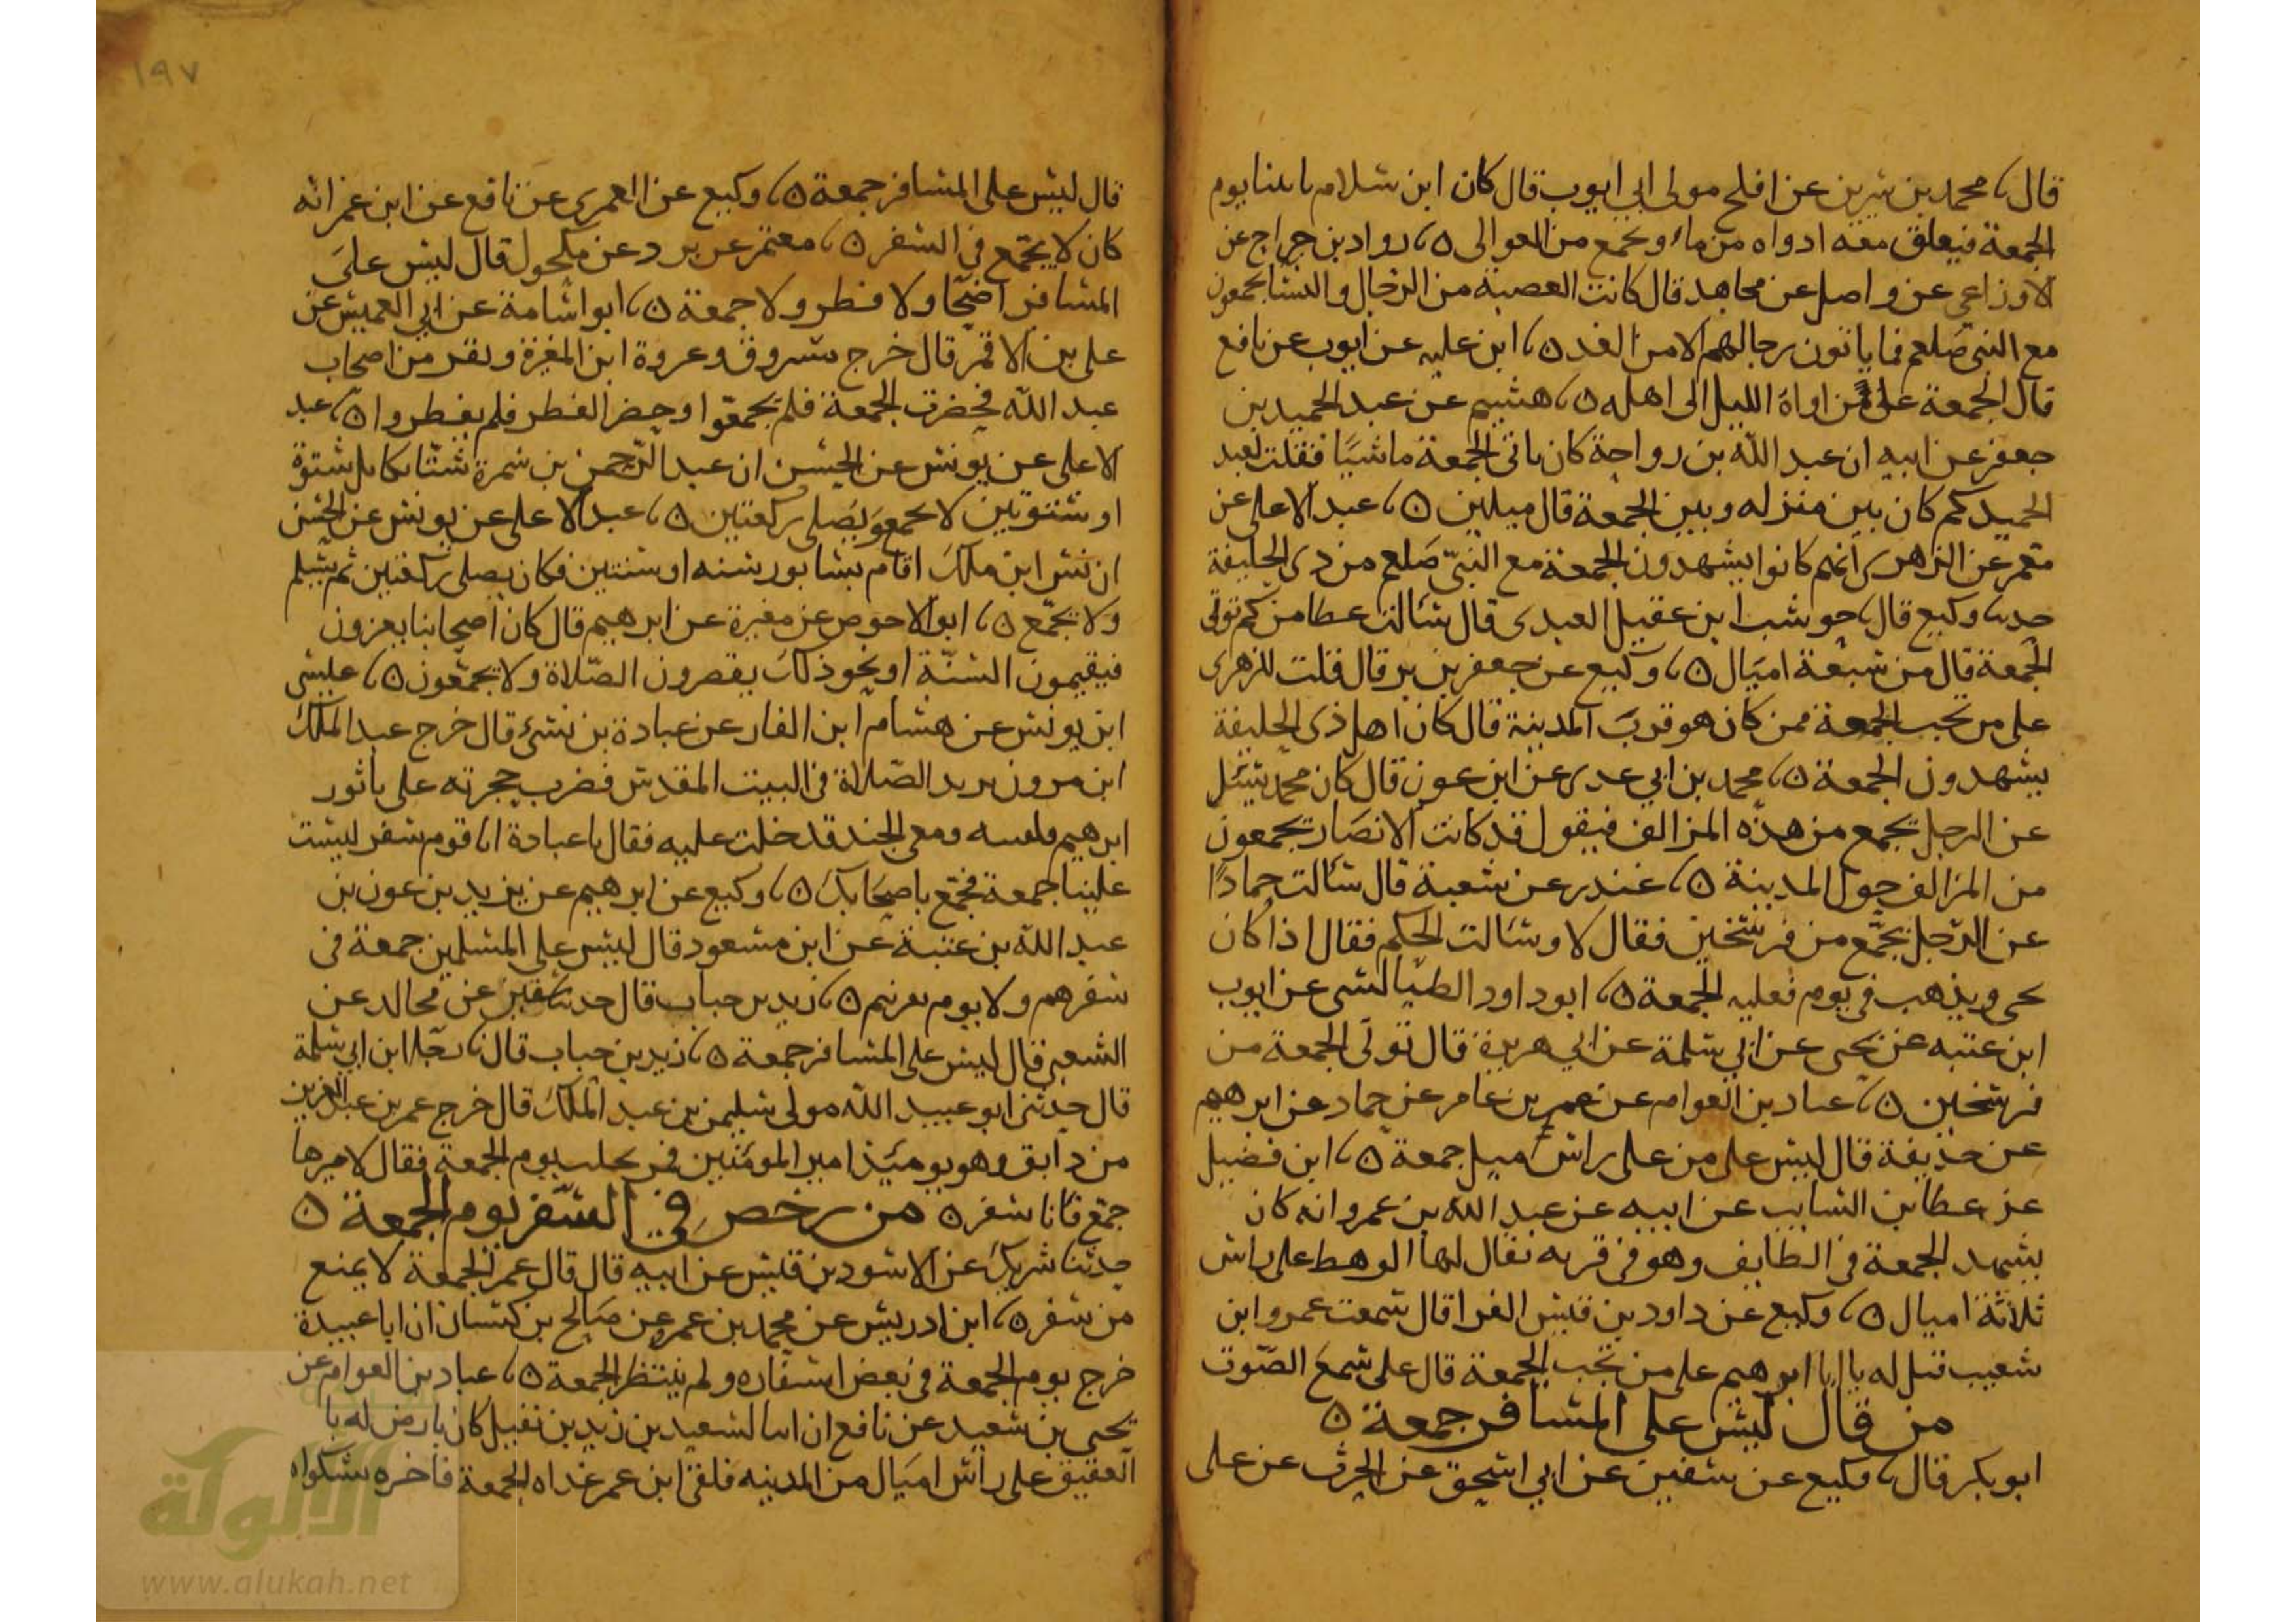 قال نا محمد بن سيرين عن افلح مولى ابي ايوب قال كان ابن سلام ياتينا يوم
الجمعة فيعلق معه ادواه من ماء ويجمع من العوالى ه نا رواد بن جراح عن
الاوزاعي عن واصل عن مجاهد قال كانت العصبة من الرجال والنسا يجمعون
مع النبي صلعم فما ياتون رحالهم الا من الغد ه نا ابن عليه عن ايوب عن نافع
قال الجمعة على من اواه الليل الى اهله ه نا هشيم عن عبد الحميد بن
جعفر عن ابيه ان عبد الله بن رواحة كان ياتى الجمعة ماشيا فقلت لعبد
الحميد كم كان بين منزله وبين الجمعة قال ميلين ه نا عبد الاعلى عن
معمر عن الزهرى انهم كانوا يشهدون الجمعة مع النبي صلعم من ذى الحليفة
حدنا وكيع قال نا حوشب ابن عقيل العبدى قال سالت عطا من كم توتى
الجمعة قال من سبعة اميال ه نا وكيع عن جعفر بن برقان قال قلت للزهرى
على من تجب الجمعة ممن كان هو قرب المدينة قال كان اهل ذى الحليفة
يشهدون الجمعة ه نا محمد بن ابي عدى عن ابن عون قال كان محمد يسئل
عن الرجل يجمع من هذه المزالف فيقول قد كانت الانصار يجمعون
من المزالف حول المدينة ه نا غندر عن شعبة قال سالت حمادا
عن الرجل يجمع من فرسخين فقال لا وسالت الحكم فقال اذا كان
يجى ويذهب فى يوم فعليه الجمعة ه نا ابو داود الطيالسى عن ايوب
ابن عتبه عن يحيى عن ابي سلمة عن ابي هريرة قال توتى الجمعة من
فرسخين ه نا عباد بن العوام عن عمر بن عامر عن حماد عن ابرهيم
عن حذيفة قال ليس على من على راس ميل جمعة ه نا ابن فضيل
عن عطا بن السايب عن ابيه عن عبد الله بن عمرو انه كان
يشهد الجمعة فى الطايف وهو فى قريه يقال لها الوهط على راس
ثلاثة اميال ه نا وكيع عن داود بن قيس الفرا قال سمعت عمرو ابن
شعيب قيل له يا ابا ابرهيم على من تجب الجمعة قال على سمع الصوت
من قال ليس على المسافر جمعة ه
ابو بكر قال نا وكيع عن سفين عن ابي اسحق عن الحرث عن على
١٩٧
قال ليس على المسافر جمعة ه نا وكيع عن العمرى عن نافع عن ابن عمر انه
كان لا يجمع في السفر ه نا معتمر عن برد عن مكحول قال ليس على
المسافر اضحا ولا فطر ولا جمعة ه نا ابو اسامة عن ابي العميس عن
على بن الاقمر قال خرج مسروق وعروة ابن المغيرة ونفر من اصحاب
عبد الله فحضرت الجمعة فلم يجمعوا وحضر الفطر فلم يفطروا ه نا عبد
الاعلى عن يونس عن الحسن ان عبد الرحمن بن سمرة شتا بكابل شتوة
او شتوتين لا يجمع ويصلى ركعتين ه نا عبد الاعلى عن يونس عن الحسن
ان انس ابن ملك اقام بسابور سنه او سنتين فكان يصلى ركعتين ثم يسلم
ولا يجمع ه نا ابو الاحوص عن مغيرة عن ابرهيم قال كان اصحابنا يغزون
فيقيمون السنة او نحو ذلك يقصرون الصلاة ولا يجمعون ه نا عيسى
ابن يونس عن هشام ابن الغار عن عبادة بن نسئ قال خرج عبد الملك
ابن مرون يريد الصلاة فى البيت المقدس فضرب حجرته على باثور
ابرهيم ومعى الجند قد خلت عليه فقال يا عبادة انا قوم سفر ليست
علينا جمعة فجمع باصحابك ه نا وكيع عن ابرهيم عن يزيد بن عون بن
عبد الله بن عتبة عن ابن مسعود قال ليس على المسلمين جمعة فى
سفرهم ولا يوم نفرهم ه نا زيد بن حباب قال حدنا سفين عن مجالد عن
الشعبي قال ليس على المسافر جمعة ه نا زيد بن حباب قال نا رجا ابن ابي سلمة
قال حدثني ابو عبيد الله مولى سليمن بن عبد الملك قال خرج عمر بن عبد العزيز
من دابق وهو يوميذ امير المومنين فمر بحلب يوم الجمعة فقال لاميرها
جمع فانا سفر ه من رخص في السفر يوم الجمعة ه
حدثنا شريك عن الاسود بن قيس عن ابيه قال قال عمر الجمعة لا يمنع
من سفر ه نا ابن ادريس عن محمد بن عمرو عن صالح بن كيسان ان ابا عبيدة
خرج يوم الجمعة فى بعض اسفاره ولم ينتظر الجمعة ه نا عباد بن العوام عن
يحيى بن سعيد عن نافع ان ابنا لسعيد بن زيد بن نفيل كان بارض له با
العقيق على راس اميال من المدينه فلقى ابن عمر غداه الجمعة فاخبره بشكواه
الألوكة
www.alukah.net